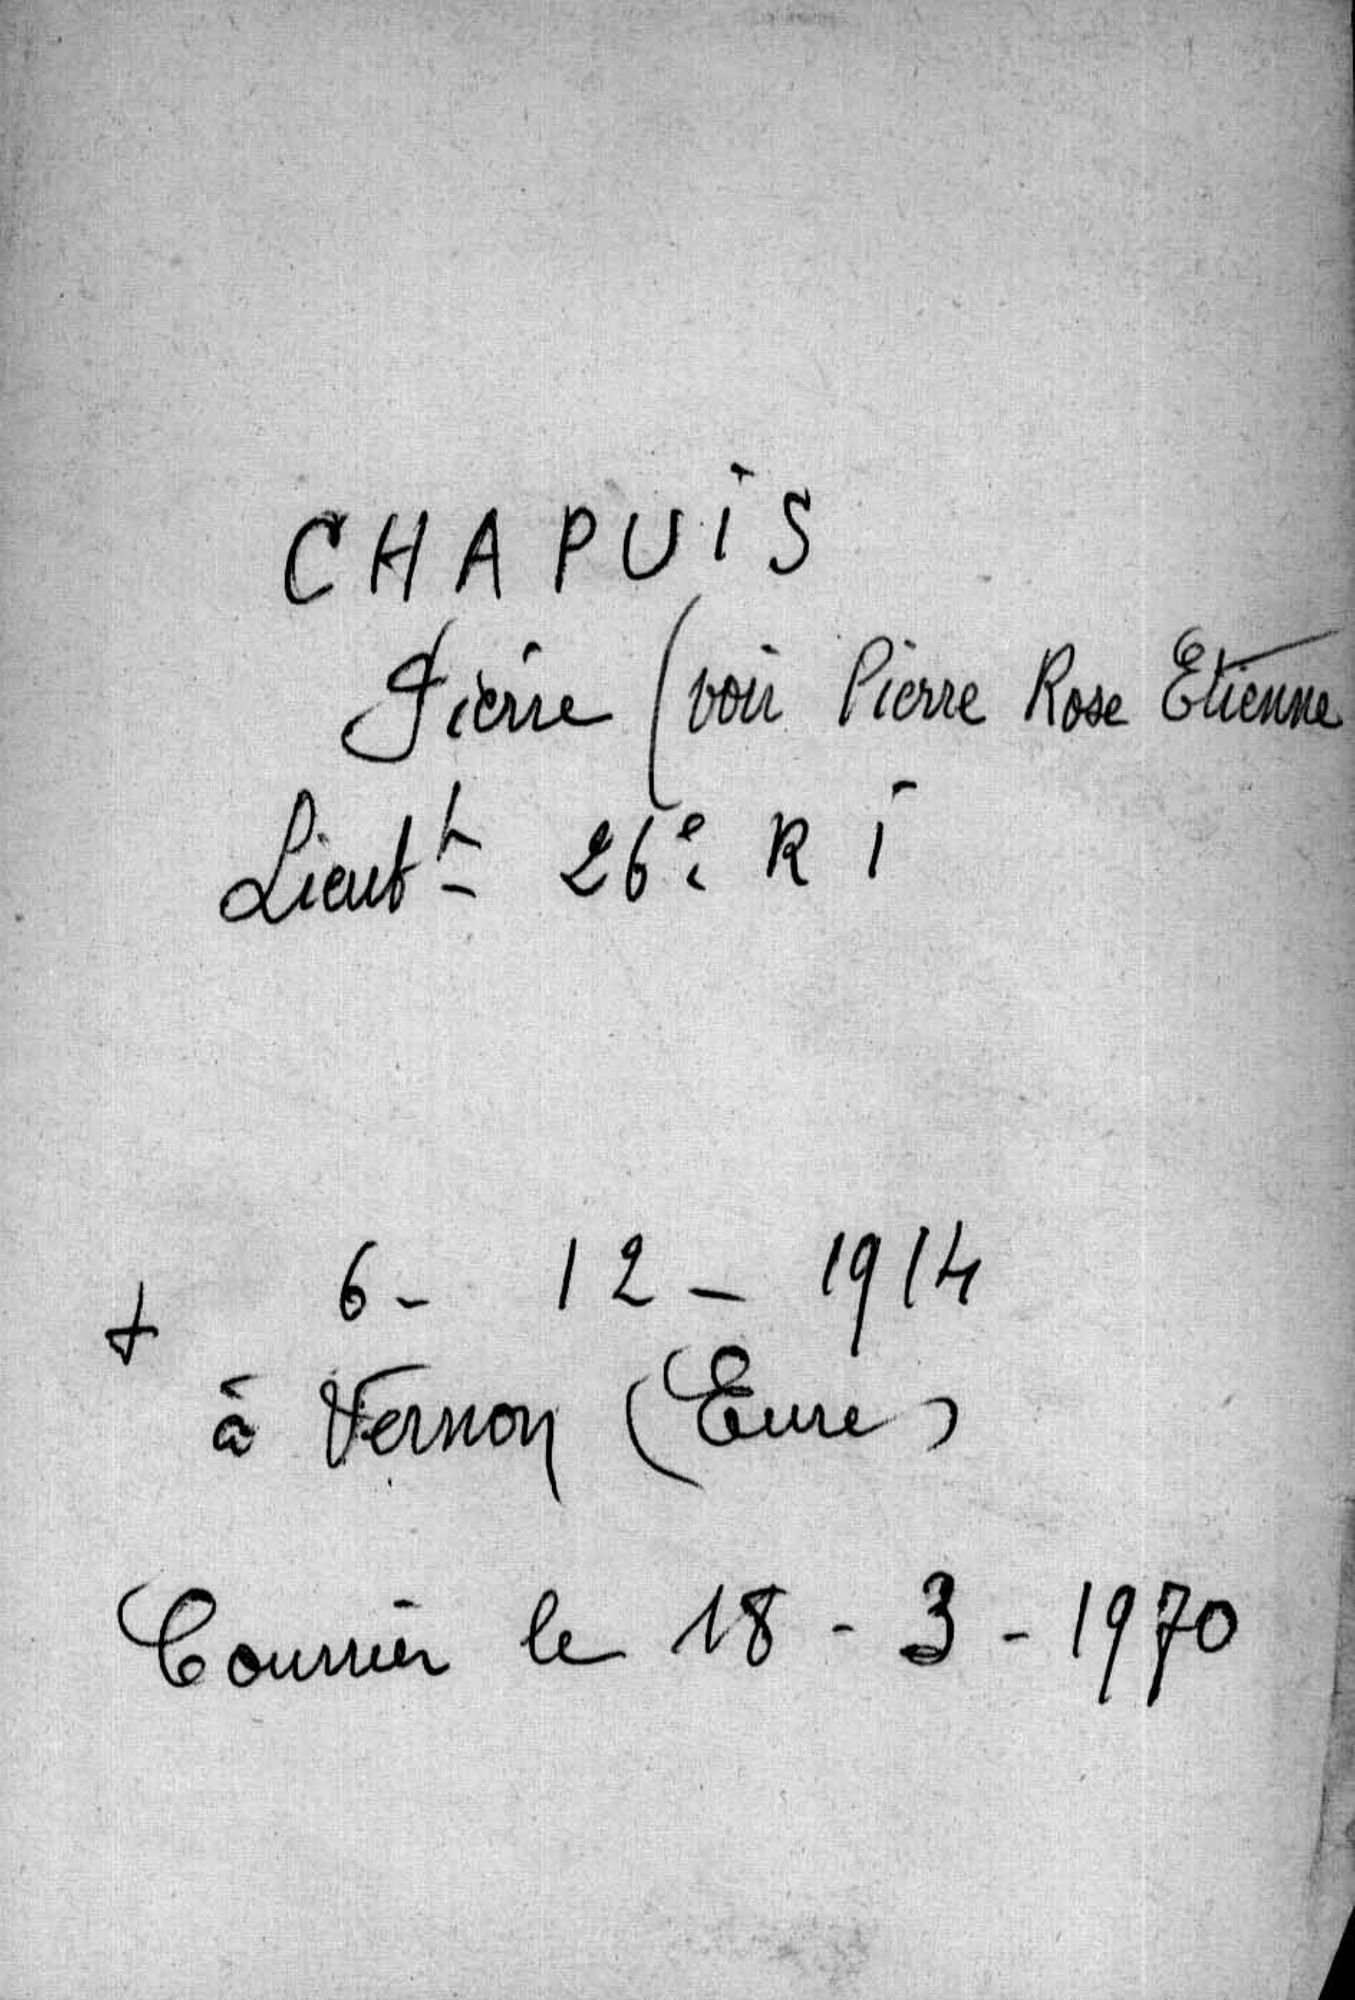 CHAPUIS
Pierre (voir Pierre Rose Etienne
Lieutt 26e R I
+ 6 - 12 - 1914
à Vernon (Eure)
Courrier le 18 - 3 - 1970